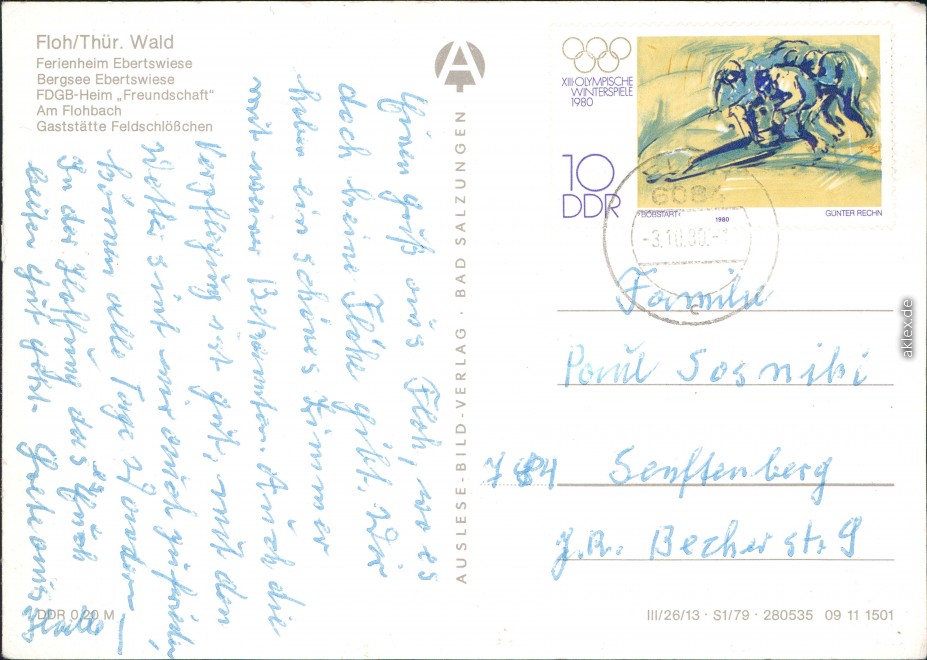 Floh/Thür. Wald
Ferienheim Ebertswiese
Bergsee Ebertswiese
FDGB-Heim „Freundschaft"
Am Flohbach
Gaststätte Feldschlößchen
Einen gruß aus Floh, wo es
doch keine Flöhe gibt. Wir
haben ein schönes Zimmer
mit einer Bekannten. Auch die
Verpflegung ist gut, mit den
Wetter sint wir auch zufrieden
können alle Tage Wandern
In der Hoffnung das es Euch
beiden gut geht.
DDR 0,20 M
A
AUSLESE-BILD-VERLAG · BAD SALZUNGEN
XIII·OLYMPISCHE
WINTERSPIELE
1980
10
DDR
›BOBSTART‹
1980
GÜNTER RECHN
-3.10.80.-
c
Familie
Paul Sosniki
784 Senftenberg
J.R. Becherstr. 9
III/26/13 · S1/79 · 280535 09 11 1501
aklex.de